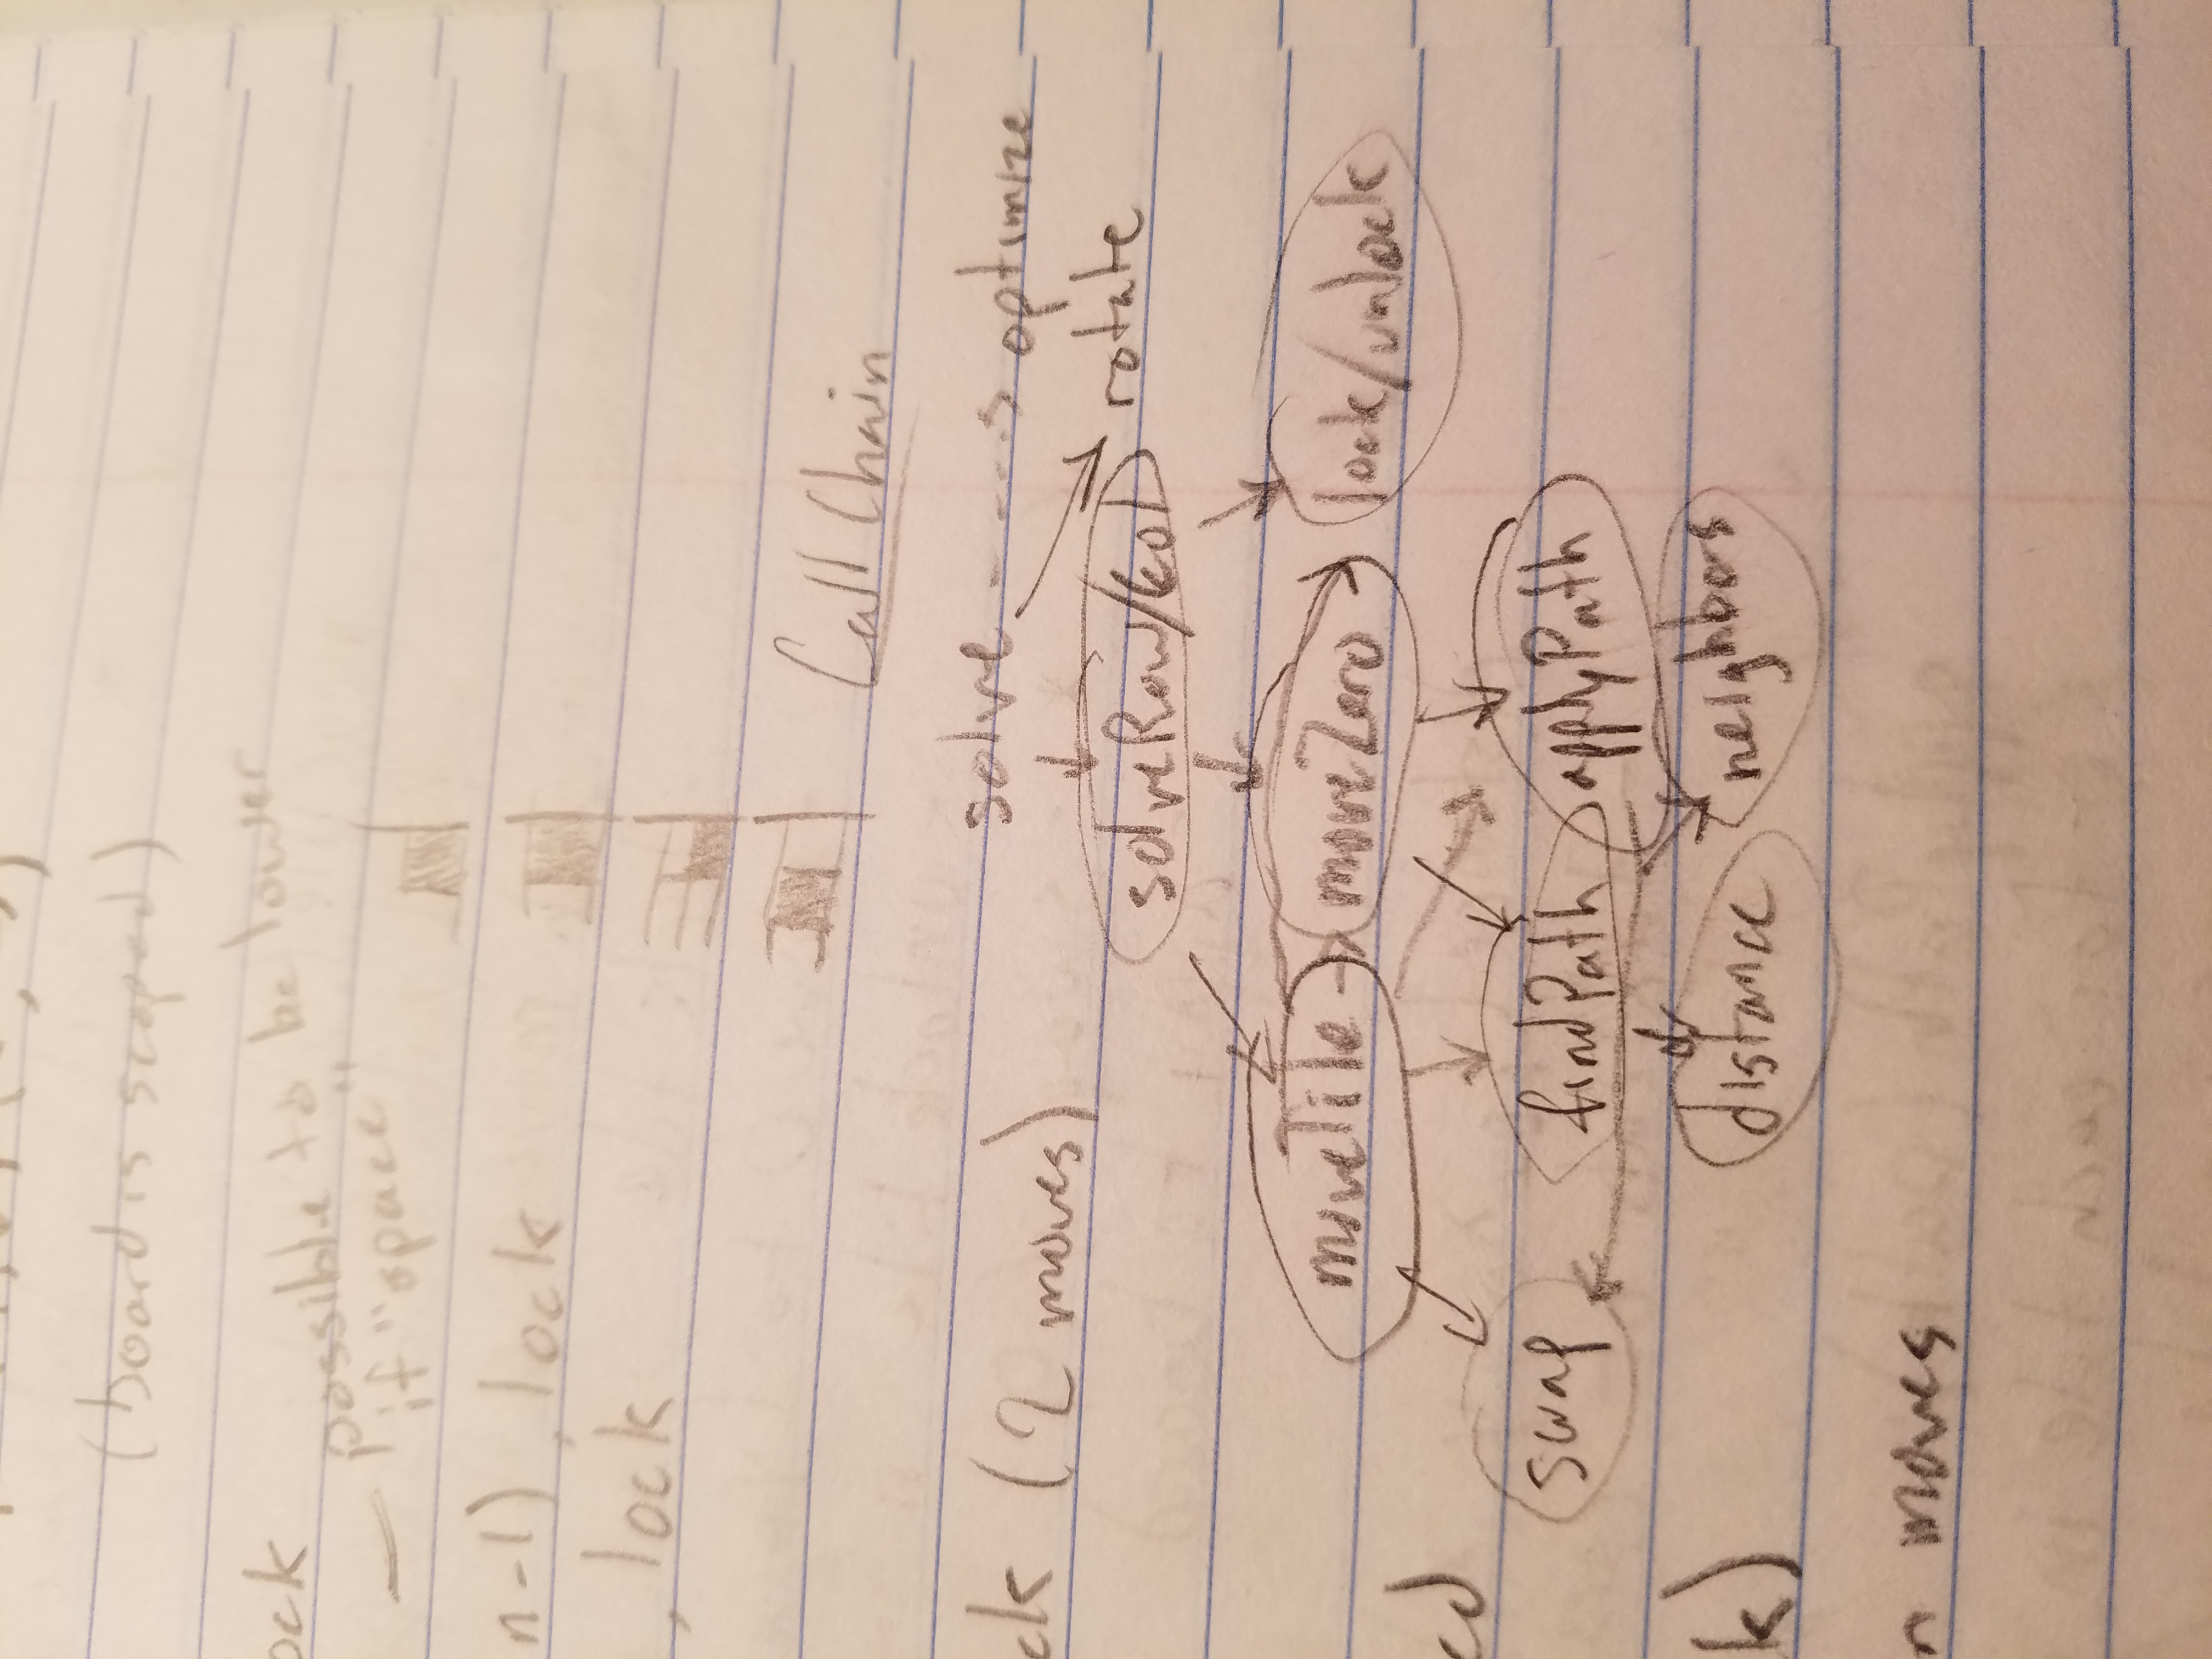 (board is scoped)
ock
— possible to be lower
if "space"
n-1), lock
, lock
Call Chain
solve ----> optimize
ck (2 moves)
rotate
solveRow/Col
moveTile moveZero lock/unlock
cd
swap findPath applyPath
distance neighbors
k)
n moves